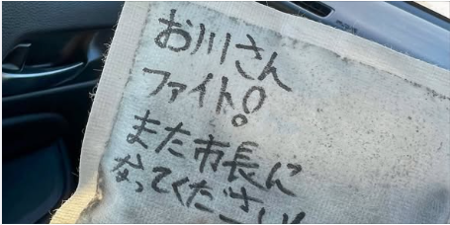 お川さん
ファイト!
また市長に
なってください